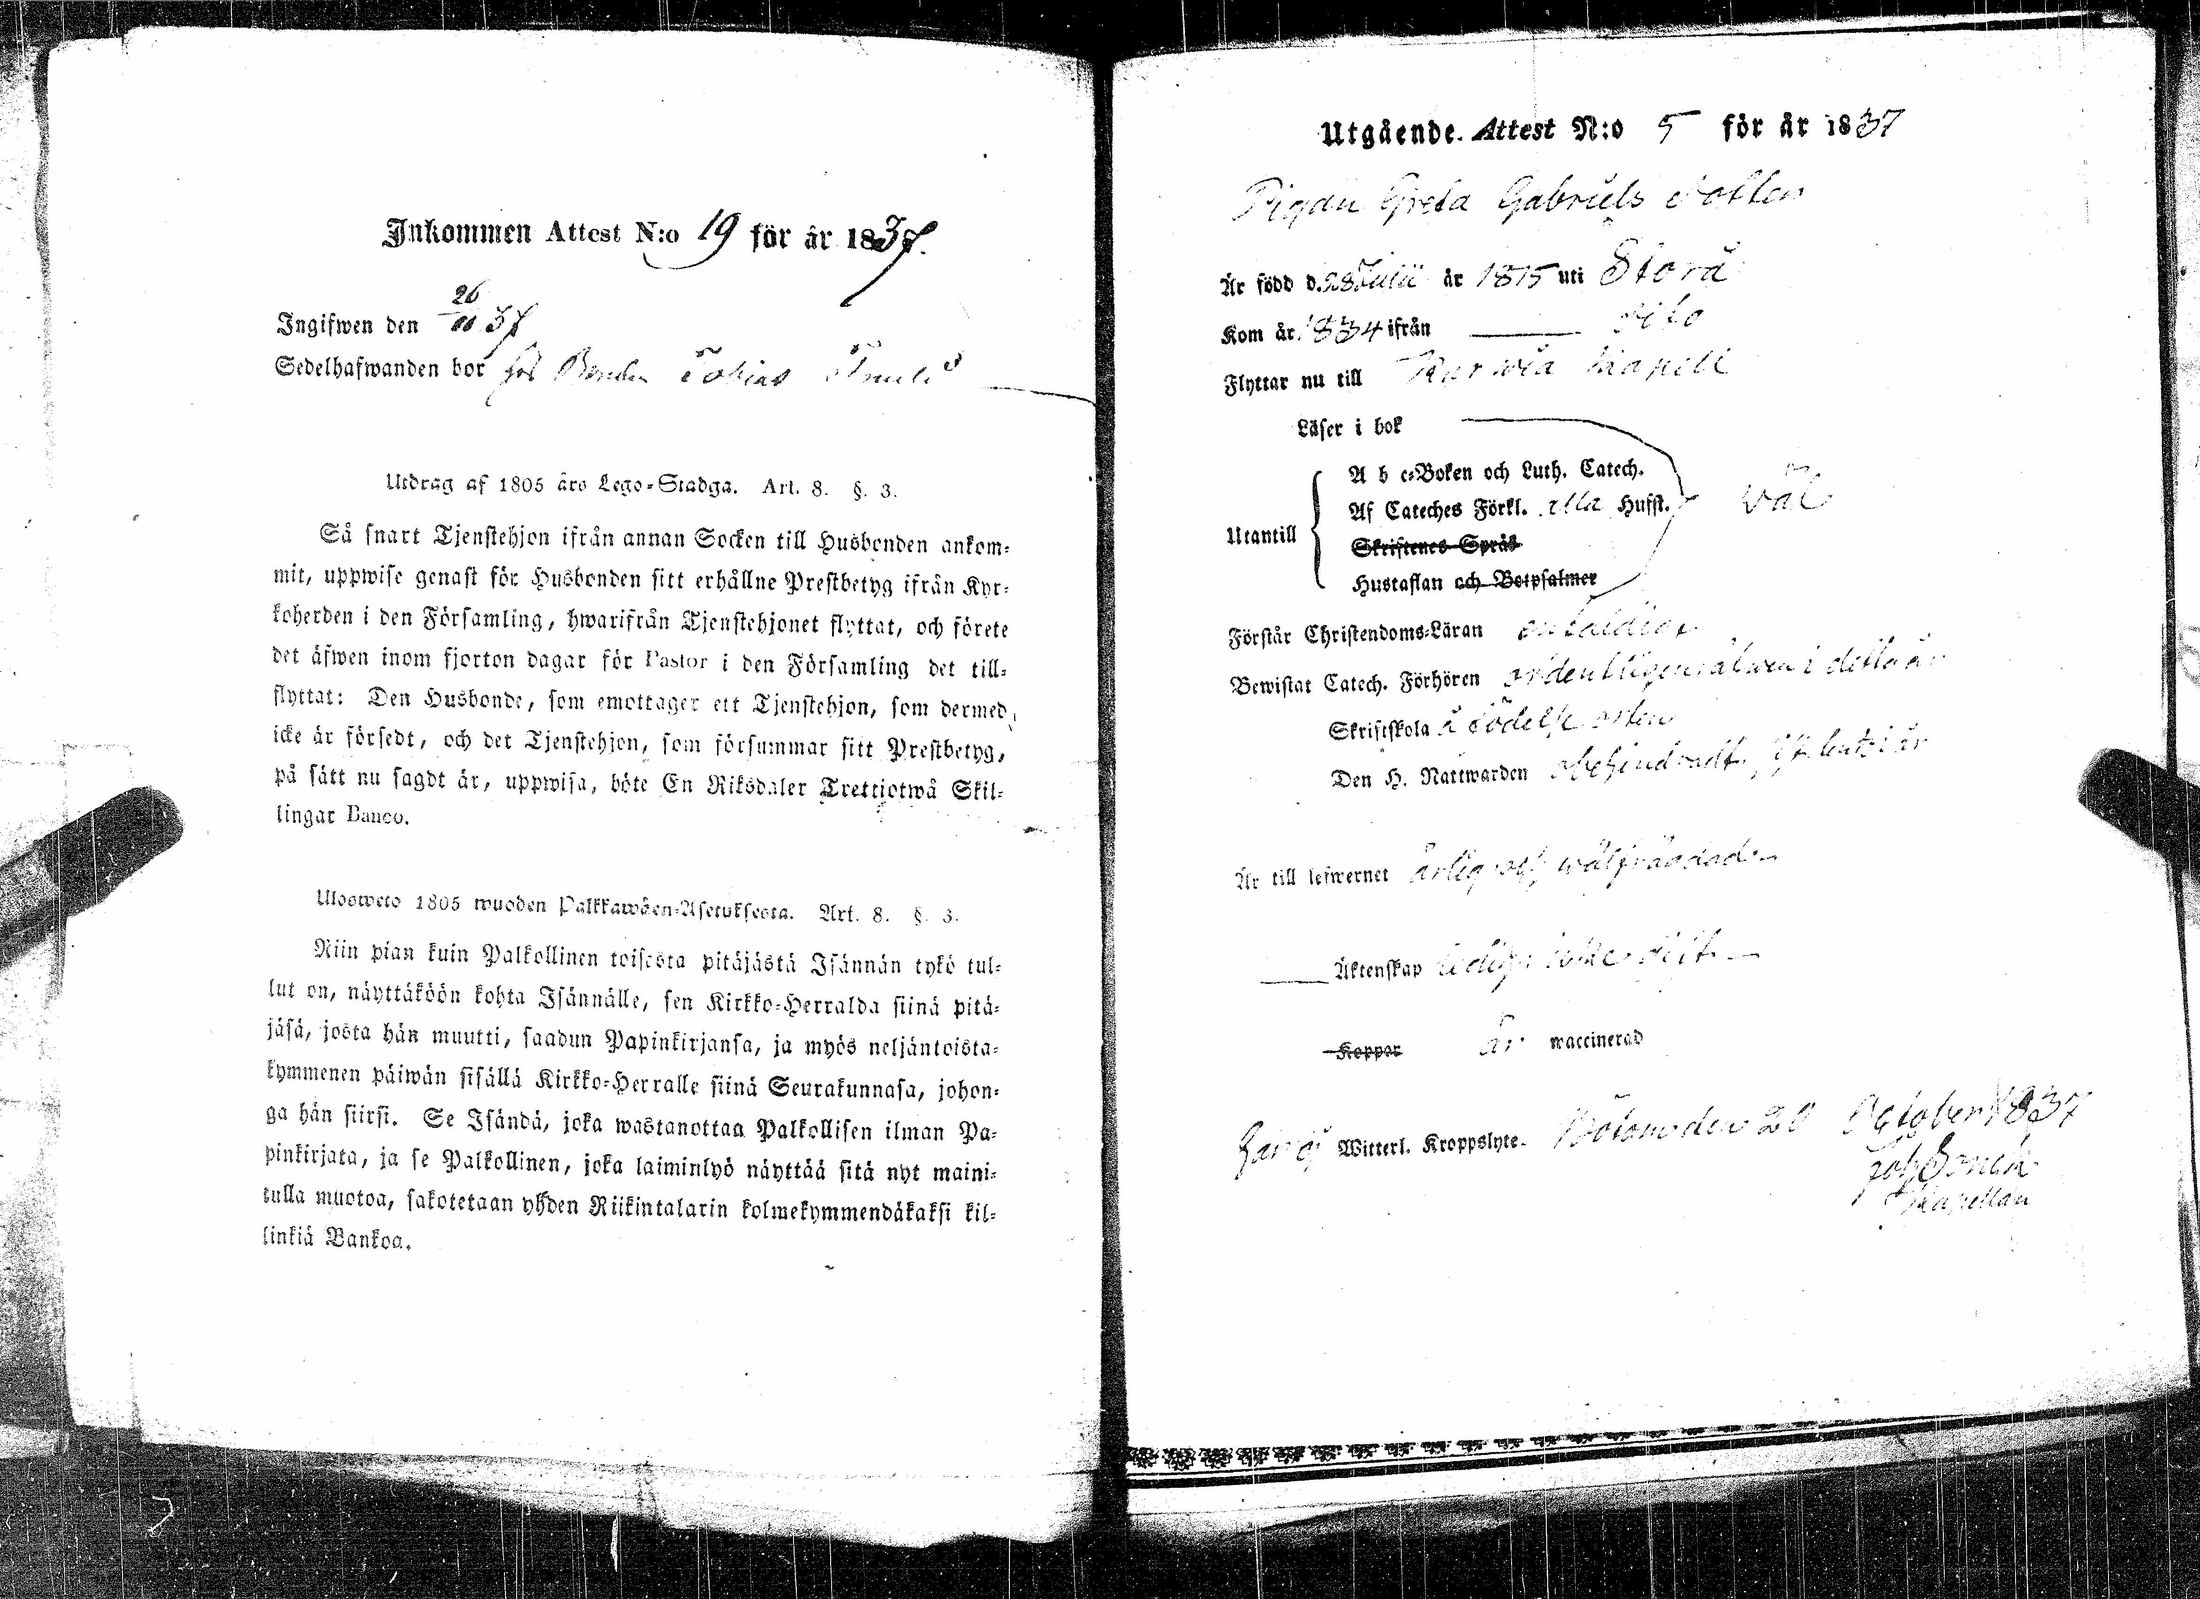 Inkommen Attest N:o 19 för år 1837.
Ingifwen den 26/11 37
Sedelhafwanden bor hos Bonden Tobias
Utdrag af 1805 års Lego-Stadga. Art. 8. §. 3.
Så snart Tjenstehjon ifrån annan Socken till Husbonden ankom-
mit, uppwise genast för Husbonden sitt erhållne Prestbetyg ifrån Kyr-
koherden i den Församling, hwarifrån Tjenstehjonet flyttat, och förete
det äfwen inom fjorton dagar för Pastor i den Församling det till-
flyttat: Den Husbonde, som emottager ett Tjenstehjon, som dermed
icke är försedt, och det Tjenstehjon, som försummar sitt Prestbetyg,
på sätt nu sagdt är, uppwisa, böte En Riksdaler Trettiotwå Skil-
lingar Banco.
Ulosweto 1805 wuoden Palkkawäen-Asetuksesta. Art. 8. §. 3.
Niin pian kuin Palkollinen toisesta pitäjästä Isännän tykö tul-
lut on, näyttäköön kohta Isännälle, sen Kirkko-Herralda siinä pitä-
jäsä, josta hän muutti, saadun Papinkirjansa, ja myös neljäntoista-
kymmenen päiwän sisällä Kirkko-Herralle siinä Seurakunnasa, johon-
ga hän siirsi. Se Isändä, joka wastanottaa Palkollisen ilman Pa-
pinkirjata, ja se Palkollinen, joka laiminlyö näyttää sitä nyt maini-
tulla muotoa, sakotetaan yhden Riikintalarin kolmekymmendäkaksi kil-
linkiä Bankoa.
Utgående Attest N:o 5 för år 1837
Pigan Greta Gabriels dotter
Är född d. 28 Julii år 1815 uti Storå
Kom år 1834 ifrån dito
Flyttar nu till Karvia Kapell
Läser i bok
A b c-Boken och Luth. Catech.
Af Cateches Förkl. alla Husst. wäl
Utantill
Skriftenes Språk
Hustaflan och Botpsalmer
Förstår Christendoms-Läran enfaldigt
Bewistat Catech. Förhören ordentligen äfwen i detta år
Skriftskola å födelse orten
Den H. Nattwarden obehindradt, i år
Är till lefwernet ärlig och wälfrägdad
Äktenskap ledig
Koppor är waccinerad
Har ej Witterl. Kroppslyte. Bötom den 20 October 1837
Joh
Kapellan